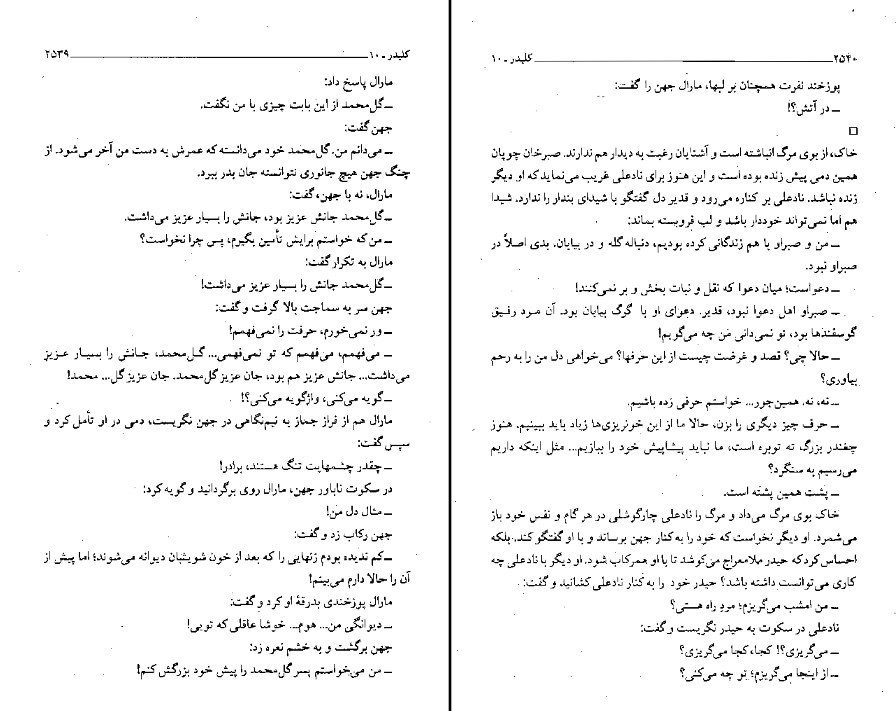 کلیدر ـ ۱۰ ۲۵۳۹
مارال پاسخ داد:
ــ گل‌محمد از این بابت چیزی با من نگفت.
جهن گفت:
ــ می‌دانم من. گل‌محمد خود می‌دانسته که عمرش به دست من آخر می‌شود. از
چنگ جهن هیچ جانوری نتوانسته جان بدر ببرد.
مارال، نه با جهن، گفت:
ــ گل‌محمد جانش عزیز بود، جانش را بسیار عزیز می‌داشت.
ــ من که خواستم برایش تأمین بگیرم، پس چرا نخواست؟
مارال به تکرار گفت:
ــ گل‌محمد جانش را بسیار عزیز می‌داشت!
جهن سر به سماجت بالا گرفت و گفت:
ــ ور نمی‌خورم، حرفت را نمی‌فهمم!
ــ می‌فهمم، می‌فهمم که تو نمی‌فهمی... گل‌محمد، جانش را بسیار عزیز
می‌داشت... جانش عزیز هم بود، جان عزیز گل‌محمد. جان عزیز گل... محمد!
ــ گویه می‌کنی، واژگویه می‌کنی؟!
مارال هم از فراز جماز به نیم‌نگاهی در جهن نگریست، دمی در او تأمل کرد و
سپس گفت:
ــ چقدر چشمهایت تنگ هستند، برادر!
در سکوت ناباور جهن، مارال روی برگردانید و گویه کرد:
ــ مثال دل من!
جهن رکاب زد و گفت:
ــ کم ندیده بودم زنهایی را که بعد از خون شویشان دیوانه می‌شوند؛ اما پیش از
آن را حالا دارم می‌بینم!
مارال پوزخندی بدرقهٔ او کرد و گفت:
ــ دیوانگی من... هوم... خوشا عاقلی که تویی!
جهن برگشت و به خشم نعره زد:
ــ من می‌خواستم پسر گل‌محمد را پیش خود بزرگش کنم!
۲۵۴۰ کلیدر ـ ۱۰
پوزخند نفرت همچنان بر لبها، مارال جهن را گفت:
ــ در آتش؟!
خاک، از بوی مرگ انباشته است و آشنایان رغبت به دیدار هم ندارند. صبرخان چوپان
همین دمی پیش زنده بوده است و این هنوز برای نادعلی غریب می‌نماید که او دیگر
زنده نباشد. نادعلی بر کناره می‌رود و قدیر دل گفتگو با شیدای بندار را ندارد. شیدا
هم اما نمی‌تواند خوددار باشد و لب فروبسته بماند:
ــ من و صبراو با هم زندگانی کرده بودیم، دنباله گله و در بیابان. بدی اصلاً در
صبراو نبود.
ــ دعواست؛ میان دعوا که نقل و نبات بخش و بر نمی‌کنند!
ــ صبراو اهل دعوا نبود، قدیر. دعوای او با گرگ بیابان بود. آن مرد رفیق
گوسفندها بود، تو نمی‌دانی من چه می‌گویم!
ــ حالا چی؟ قصد و غرضت چیست از این حرفها؟ می‌خواهی دل من را به رحم
بیاوری؟
ــ نه، نه. همین‌جور... خواستم حرفی زده باشیم.
ــ حرف چیز دیگری را بزن، حالا ما از این خونریزی‌ها زیاد باید ببینیم. هنوز
چغندر بزرگ ته توبره است، ما نباید پیشاپیش خود را ببازیم... مثل اینکه داریم
می‌رسیم به سنگرد؟
ــ پشت همین پشته است.
خاک بوی مرگ می‌داد و مرگ را نادعلی چارگوشلی در هر گام و نفس خود باز
می‌شمرد. او دیگر نخواست که خود را به کنار جهن برساند و با او گفتگو کند. بلکه
احساس کرد که حیدر ملامعراج می‌کوشد تا با او همرکاب شود. او دیگر با نادعلی چه
کاری می‌توانست داشته باشد؟ حیدر خود را به کنار نادعلی کشانید و گفت:
ــ من امشب می‌گریزم؛ مرد راه هستی؟
نادعلی در سکوت به حیدر نگریست و گفت:
ــ می‌گریزی؟! کجا، کجا می‌گریزی؟
ــ از اینجا می‌گریزم؛ تو چه می‌کنی؟